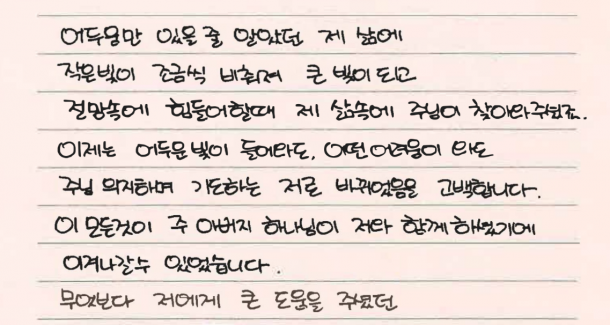 어두움만 있을 줄 알았던 제 삶에
작은빛이 조금씩 비춰져 큰 빛이 되고
절망속에 힘들어할때 제 삶속에 주님이 찾아와주셨죠.
이제는 어두운 빛이 들어와도, 어떤 어려움이 와도
주님 의지하며 기도하는 저로 바뀌었음을 고백합니다.
이 모든것이 주 아버지 하나님이 저와 함께 하셨기에
이겨나갈수 있었습니다.
무엇보다 저에게 큰 도움을 주셨던